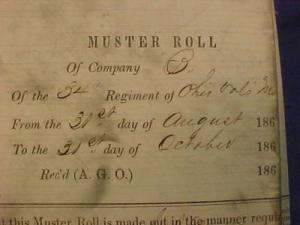 MUSTER ROLL
Of Company B
Of the 34th Regiment of Ohio Vols
From the 31st day of August 186
To the 31st day of October 186
Rec'd (A. G. O.) 186
t this Muster Roll is made out in the manner requi